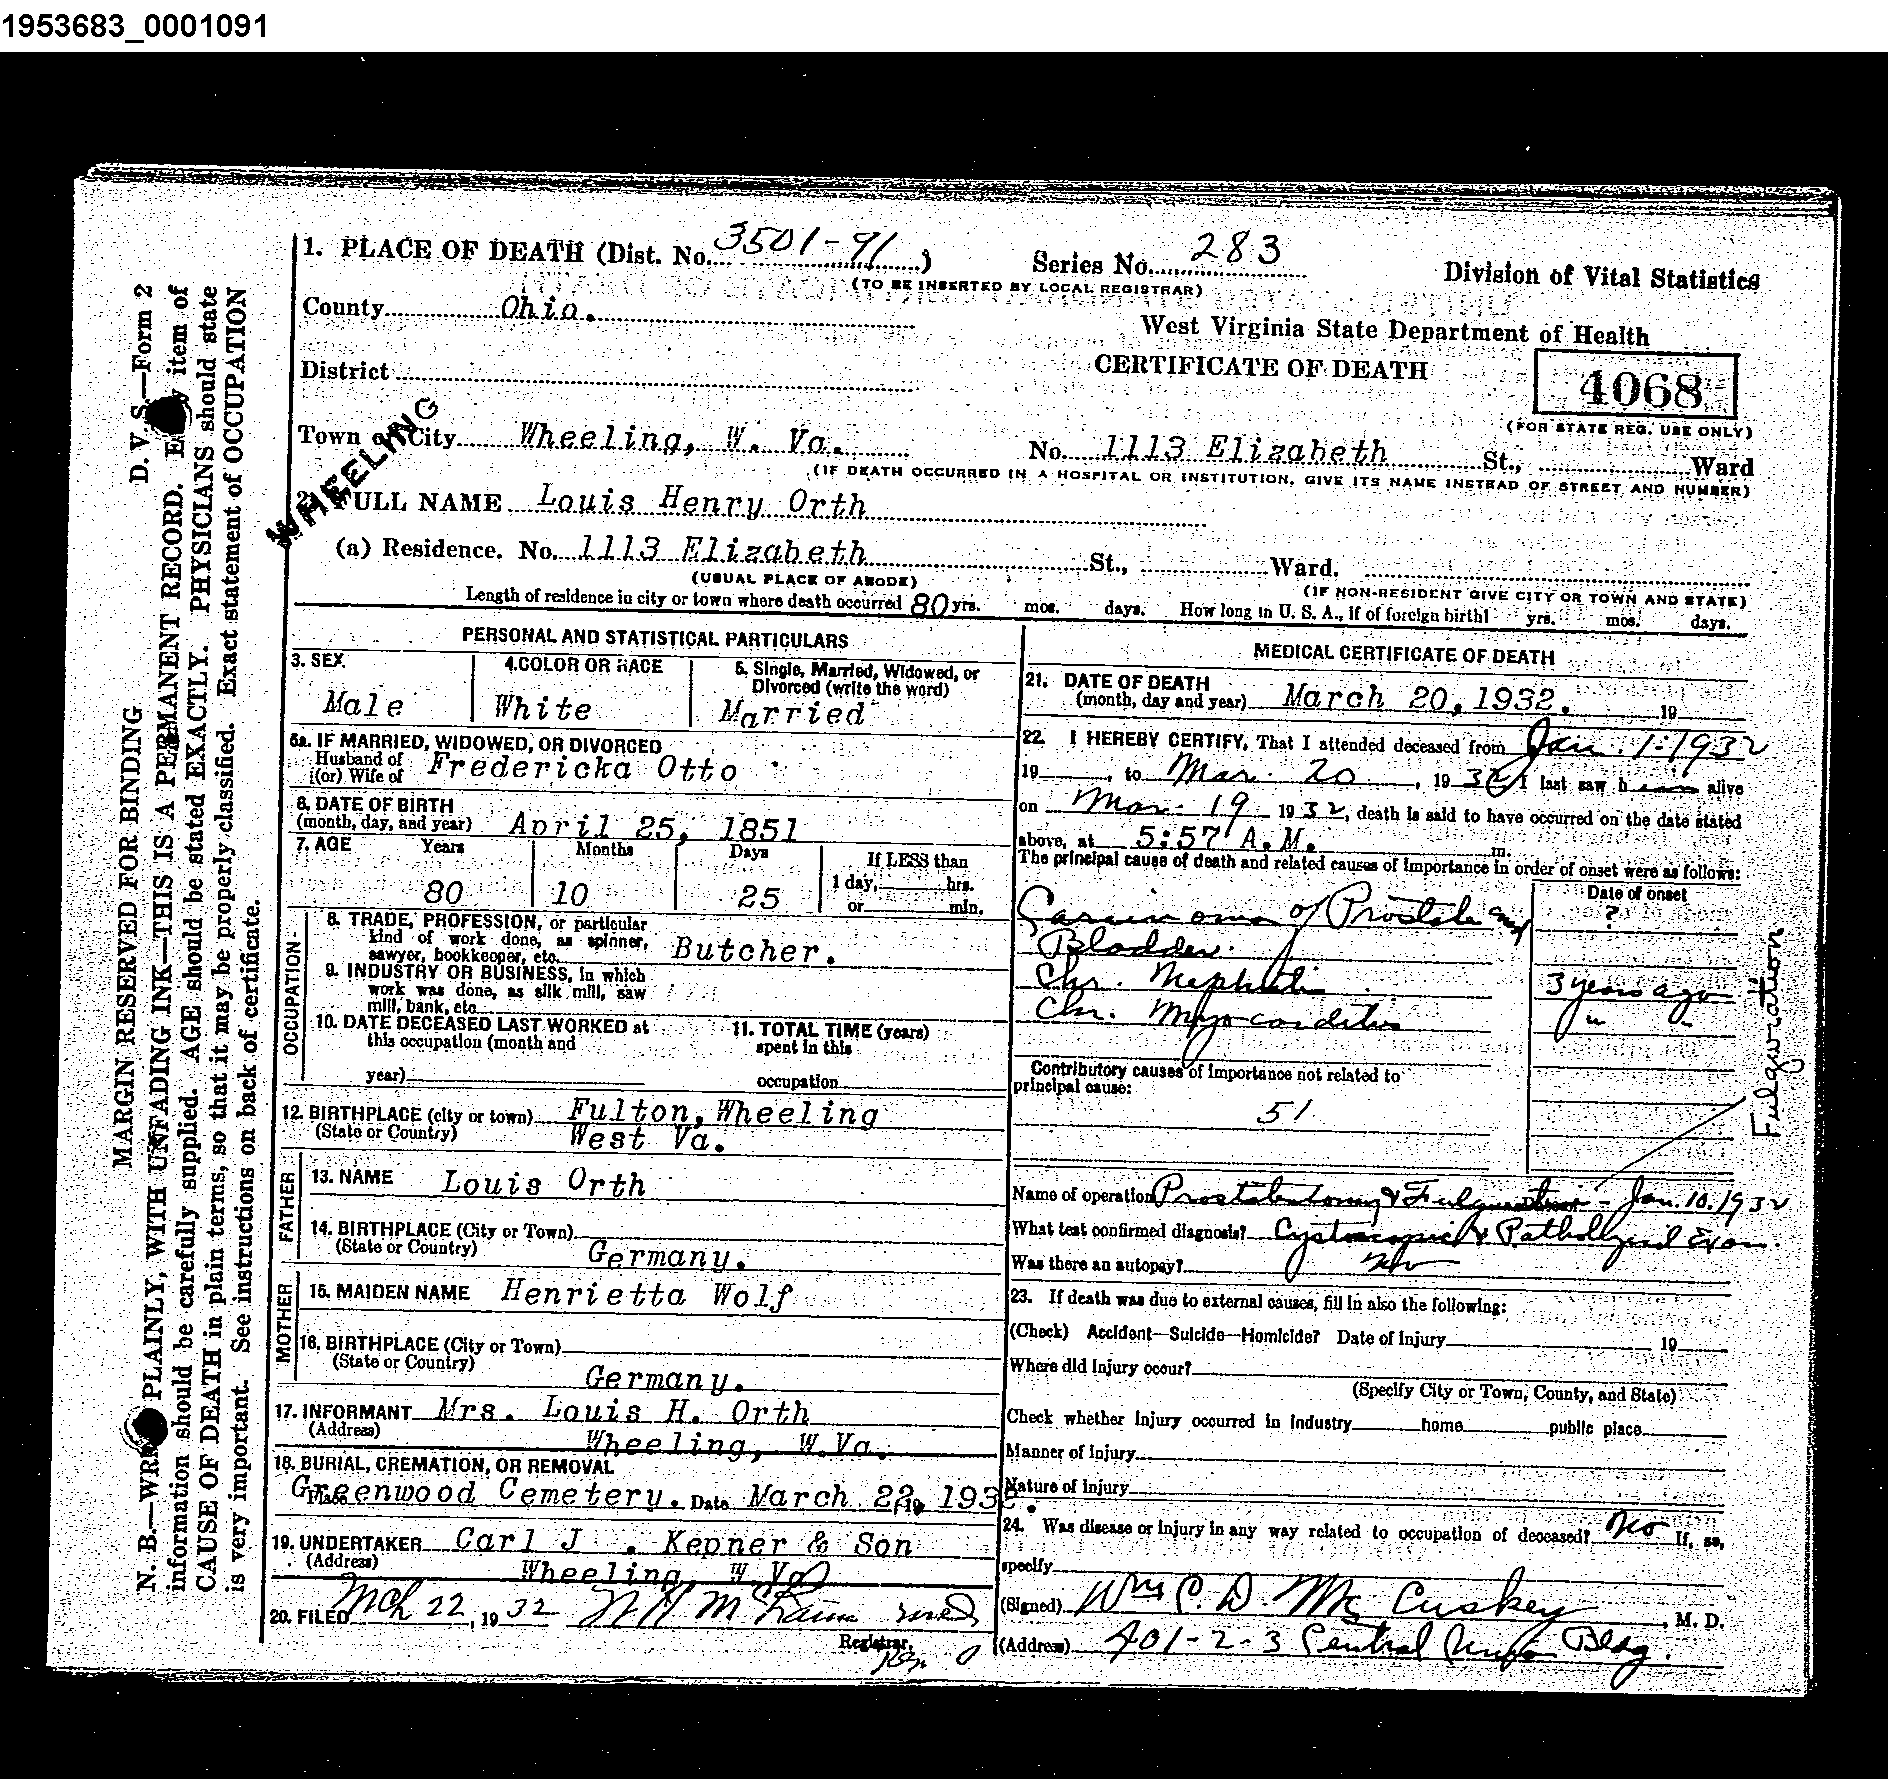 1953683_0001091
1. PLACE OF DEATH (Dist. No. 3501-91)
Series No. 283
(TO BE INSERTED BY LOCAL REGISTRAR)
Division of Vital Statistics
County Ohio.
West Virginia State Department of Health
District
CERTIFICATE OF DEATH
4068
(FOR STATE REG. USE ONLY)
WHEELING
Town or City Wheeling, W. Va. No. 1113 Elizabeth St., Ward
(IF DEATH OCCURRED IN A HOSPITAL OR INSTITUTION, GIVE ITS NAME INSTEAD OF STREET AND NUMBER)
2. FULL NAME Louis Henry Orth
(a) Residence. No. 1113 Elizabeth St., Ward.
(USUAL PLACE OF ABODE)
(IF NON-RESIDENT GIVE CITY OR TOWN AND STATE)
Length of residence in city or town where death occurred 80 yrs. mos. days. How long in U. S. A., if of foreign birth? yrs. mos. days.
PERSONAL AND STATISTICAL PARTICULARS
3. SEX
Male
4. COLOR OR RACE
White
5. Single, Married, Widowed, or
Divorced (write the word)
Married
5a. IF MARRIED, WIDOWED, OR DIVORCED
Husband of
(or) Wife of Fredericka Otto
6. DATE OF BIRTH
(month, day, and year) April 25, 1851
7. AGE Years Months Days If LESS than
80 10 25 1 day, hrs.
or min.
OCCUPATION
8. TRADE, PROFESSION, or particular
kind of work done, as spinner,
sawyer, bookkeeper, etc. Butcher.
9. INDUSTRY OR BUSINESS, in which
work was done, as silk mill, saw
mill, bank, etc.
10. DATE DECEASED LAST WORKED at
this occupation (month and
year)
11. TOTAL TIME (years)
spent in this
occupation
12. BIRTHPLACE (city or town) Fulton, Wheeling
(State or Country) West Va.
FATHER
13. NAME Louis Orth
14. BIRTHPLACE (City or Town)
(State or Country) Germany.
MOTHER
15. MAIDEN NAME Henrietta Wolf
16. BIRTHPLACE (City or Town)
(State or Country)
Germany.
17. INFORMANT Mrs. Louis H. Orth
(Address) Wheeling, W.Va.
18. BURIAL, CREMATION, OR REMOVAL
Place Greenwood Cemetery. Date March 22, 193
19. UNDERTAKER Carl J. Kepner & Son
(Address) Wheeling, W Va
20. FILED Mch 22, 1932
Registrar.
MEDICAL CERTIFICATE OF DEATH
21. DATE OF DEATH
(month, day and year) March 20, 1932. 19
22. I HEREBY CERTIFY, That I attended deceased from Jan. 1-1932
19 , to Mar. 20 , 1932 I last saw him alive
on Mar. 19 1932, death is said to have occurred on the date stated
above, at 5:57 A.M. m.
The principal cause of death and related causes of importance in order of onset were as follows:
Date of onset
Carcinoma of Prostate and ?
Bladder.
Chr. Nephritis 3 years ago
Chr. Myocarditis " "
Contributory causes of importance not related to
principal cause:
51
Fulguration
Name of operation Prostatectomy & Fulguration - Jan. 10. 1932
What test confirmed diagnosis? Cystoscopic & Pathological Exam.
Was there an autopsy? No
23. If death was due to external causes, fill in also the following:
(Check) Accident—Suicide—Homicide? Date of Injury 19
Where did injury occur?
(Specify City or Town, County, and State)
Check whether injury occurred in industry home public place
Manner of injury
Nature of injury
24. Was disease or injury in any way related to occupation of deceased? No If, so,
specify
(Signed) Wm C. D. McCuskey, M. D.
(Address) 401-2-3 Central Union Bldg.
D. V. S.—Form 2
MARGIN RESERVED FOR BINDING
N. B.—WRITE PLAINLY, WITH UNFADING INK—THIS IS A PERMANENT RECORD. Every item of
information should be carefully supplied. AGE should be stated EXACTLY. PHYSICIANS should state
CAUSE OF DEATH in plain terms, so that it may be properly classified. Exact statement of OCCUPATION
is very important. See instructions on back of certificate.